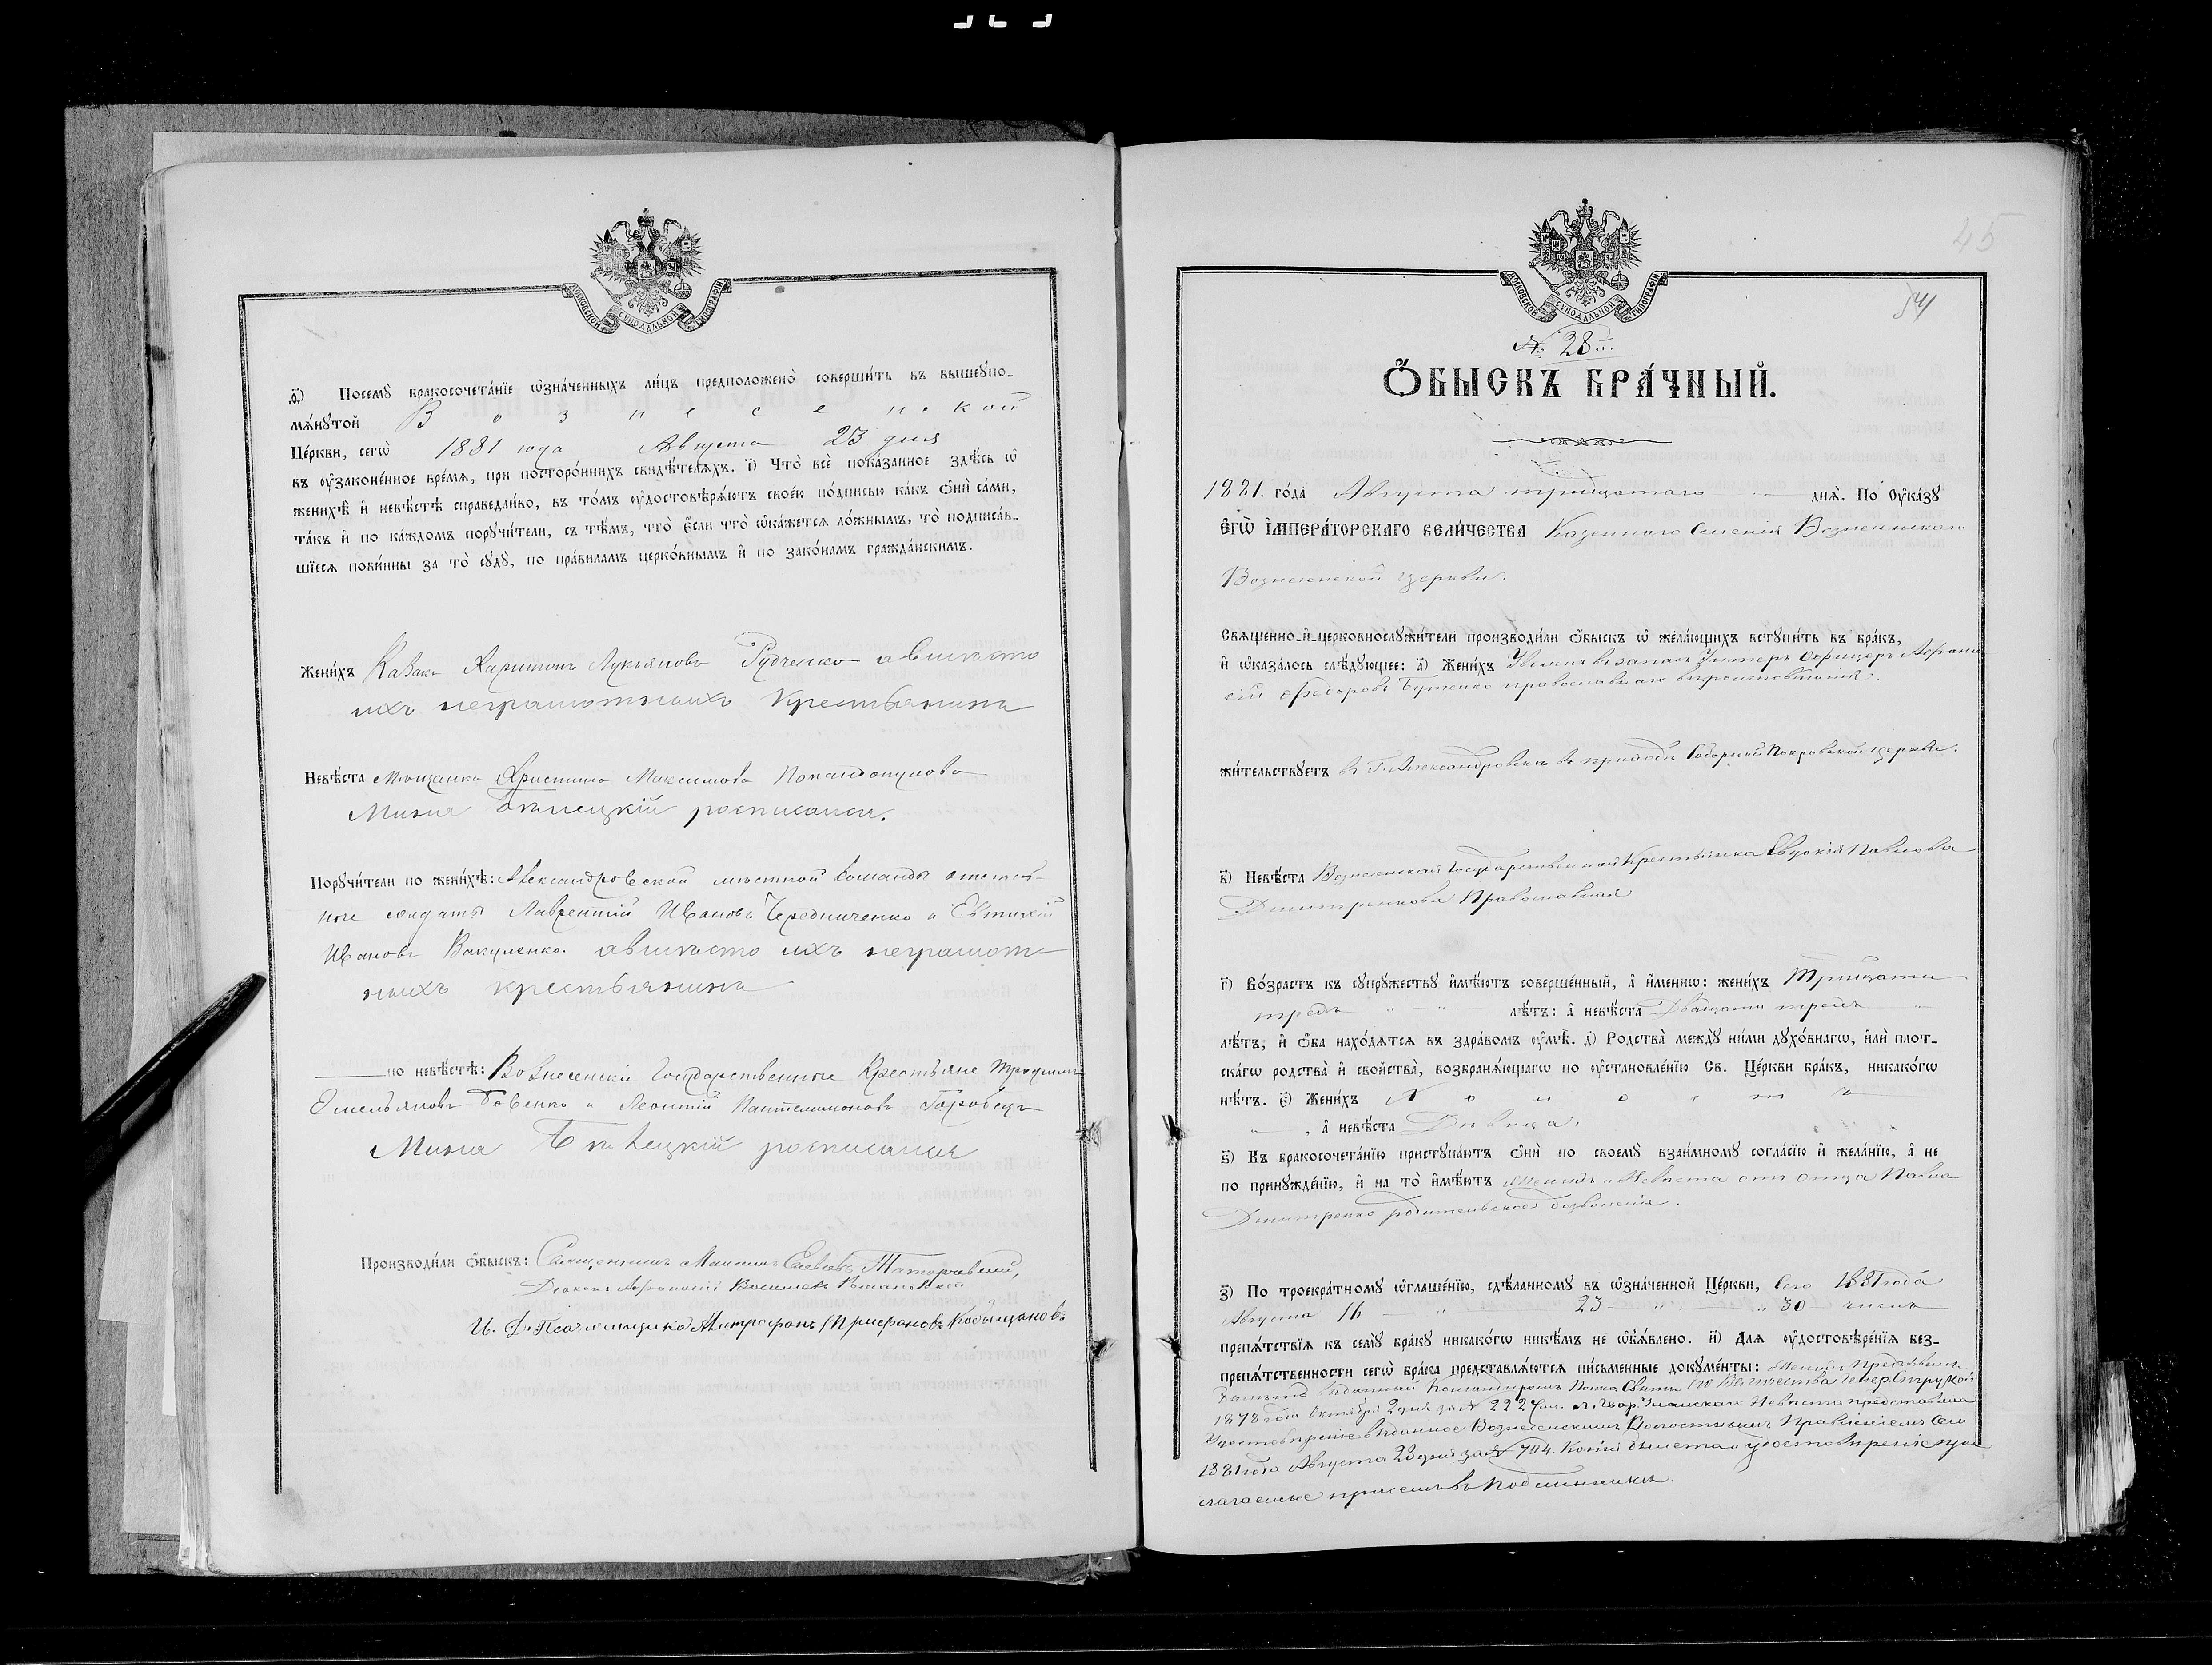 МОСКОВСКОЙ СѴНОДАЛЬНОЙ ТИПОГРАФІИ
ѳ҃і) Посемꙋ̀ бракосочета́нїе ѡ҆зна́ченныхъ ли́цъ предположено̀ соверши́ть въ вышеꙋпо-
мѧ́нꙋтой Вознесенской
Це́ркви, сегѡ̀ 1881 года Августа 23 дня
въ ᲂу҆зако́ненное вре́мѧ, при посторо́ннихъ свидѣ́телѧхъ. і҃) Что̀ всѐ пока́занное здѣ́сь ѡ҆
женихѣ̀ и҆ невѣ́стѣ справедли́во, въ то́мъ ᲂу҆достовѣрѧ́ютъ свое́ю по́дписью ка́къ ѻ҆нѝ са́ми,
та́къ и҆ по ка́ждомъ порꙋчи́тели, съ тѣ́мъ, что̀ є҆́сли что̀ ѡ҆ка́жетсѧ ло́жнымъ, то̀ подписа́в-
шїесѧ пови́нны за то̀ сꙋдꙋ̀, по пра́виламъ церко́внымъ и҆ по зако́намъ гражда́нскимъ.
Жени́хъ Казакъ Харитонъ Лукьяновъ Рудченко авмѣсто
ихъ неграмотныхъ Крестьянинъ
Невѣ́ста Мѣщанка Христина Максимова
Мина росписался.
Порꙋчи́тели по женихѣ̀: Александровской мѣстной Команды
солдаты Лаврентій Ивановъ Чередниченко и Евтихій
Ивановъ Вакуленко. авмѣсто ихъ неграмот-
ныхъ крестьянинъ
по невѣ́стѣ: Вознесенскіе Государственные Крестьяне Трофимъ
Емельяновъ и Леонтій Пантелимоновъ Горобецъ
Мина росписался
Производи́ли ѻ҆́быскъ: Священникъ
Діаконъ
И. Д. Псаломщика Митрофанъ Трифоновъ
45
54
МОСКОВСКОЙ СѴНОДАЛЬНОЙ ТИПОГРАФІИ
№ 28й.
Ѻ҆́БЫСКЪ БРА́ЧНЫЙ.
1881. го́да Августа тридцатого днѧ̀. По Оу҆ка́зꙋ
Є҆гѡ̀ І҆мпера́торскаго вели́чества Казенного Селенія Вознесенского
Вознесенской церкви.
Свѧще́нно-и҆-церковнослꙋжи́тели производи́ли ѻ҆́быскъ ѡ҆ жела́ющихъ встꙋпи́ть въ бра́къ,
и҆ ѡ҆каза́лось слѣ́дꙋющее: а҃) Жени́хъ Уволен въ запас Унтеръ Офицеръ Афрана
сій Федоровъ Бутенко православнаго вѣроисповѣданія.
жи́тельствꙋетъ въ Г. Александровскѣ въ приходѣ Соборной Покровской церкви.
в҃) Невѣ́ста Вознесенская Государственная Крестьянка Евдокія Павлова
Дмитренкова Православная
г҃) Во́зрастъ къ сꙋпрꙋ́жествꙋ и҆мѣ́ютъ соверше́нный, а҆ и҆́меннѡ: жени́хъ Тридцати
трехъ лѣ́тъ: а҆ невѣ́ста Двадцати трехъ
лѣ́тъ, и҆ ѻ҆́ба нахо́дѧтсѧ въ здра́вомъ ᲂу҆мѣ̀. д҃) Родства̀ междꙋ̀ ни́ми дꙋхо́внагѡ, и҆лѝ плот-
ска́гѡ родства̀ и҆ сво́йства, возбранѧ́ющагѡ по ᲂу҆становле́нїю Св. Це́ркви бра́къ, никако́гѡ
нѣ́тъ. є҃) Жени́хъ Холостъ
, а҆ невѣ́ста Дѣвица.
ѕ҃) Къ бракосочета́нїю пристꙋпа́ютъ ѻ҆нѝ по своемꙋ̀ взаи́мномꙋ согла́сїю и҆ жела́нїю, а҆ не
по принꙋжде́нїю, и҆ на то̀ и҆мѣ́ютъ Женихъ и Невѣста отъ отца Павла
Дмитренко родительское дозволеніе.
з҃) По троекра́тномꙋ ѡ҆глаше́нїю, сдѣ́ланномꙋ въ ѡ҆зна́ченной Це́ркви, Сего 1881 года
Августа 16 23 30 чиселъ
препѧ́тствїѧ къ семꙋ̀ бра́кꙋ никако́гѡ никѣ́мъ не ѡ҆б̾ѧ́влено. и҃) Длѧ ᲂу҆достовѣ́ренїѧ без-
препѧ́тственности сегѡ̀ бра́ка представлѧ́ютсѧ пи́сьменные докꙋме́нты: Женихъ Предъявилъ
Билетъ выданный Командиромъ Полка Свиты Его Величества
1878 года Октября 2 дня за № 2227 Невѣста представила
Удостовѣреніе выданное Вознесенскимъ Волостнымъ Правленіемъ Сего
1881 года Августа 23 дня за № 704. Копіи билета и удостовѣреніе при
лагаемые при семъ въ подлинникѣ.